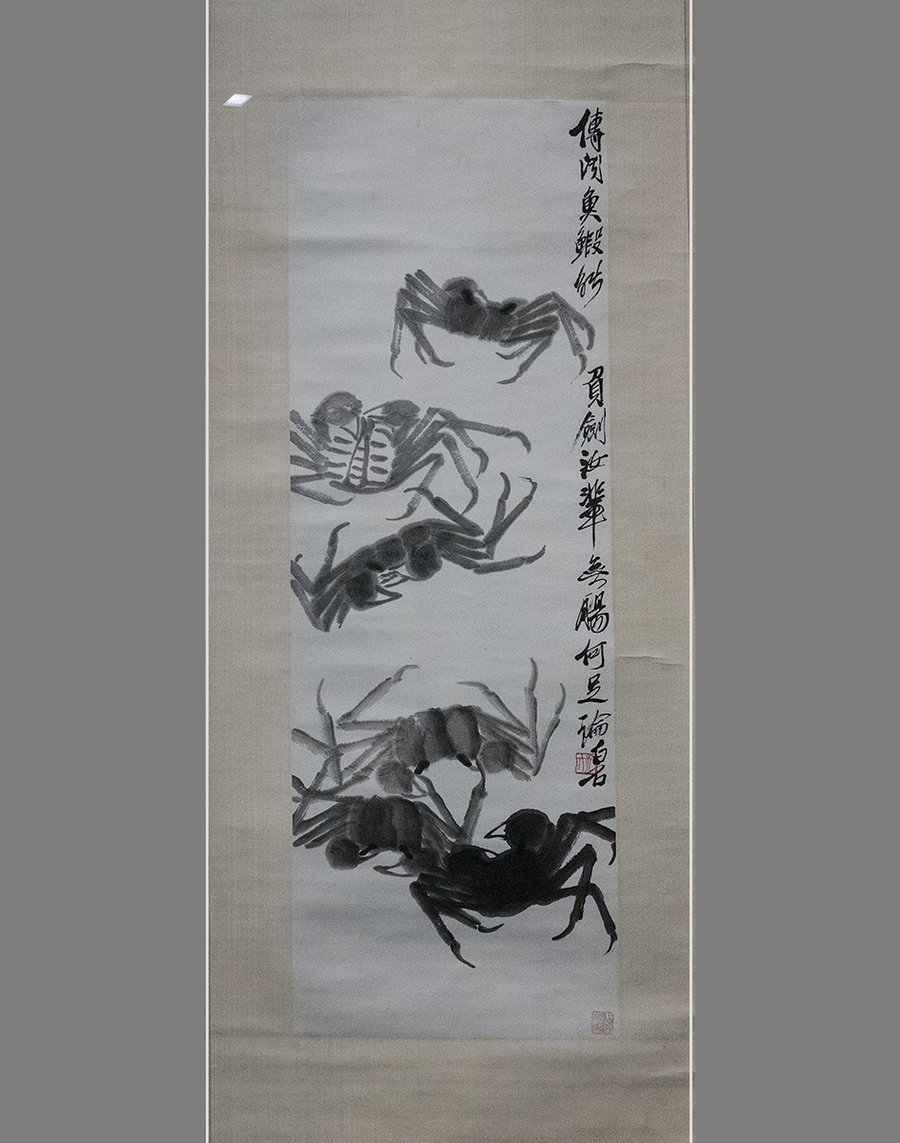 傳聞魚鰕能負劍汝輩無腸何足論白石